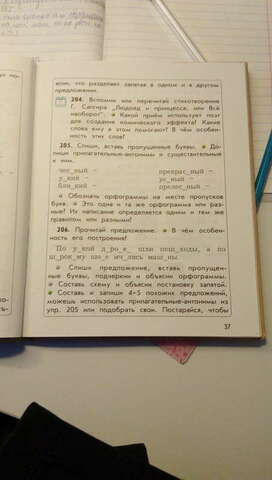 если, что разделяет запятая в одном и в другом
предложении.
204. Вспомни или перечитай стихотворение
Г. Сапгира „Людоед и принцесса, или Всё
наоборот". Какой приём использует поэт
для создания комического эффекта? Какие
слова ему в этом помогают? В чём особен-
ность этих слов?
205. Спиши, вставь пропущенные буквы. До-
пиши прилагательные-антонимы и существительные
к ним.
чес_ный –
у_кий –
бли_кий –
прекрас_ный –
ре_кий –
прелес_ный –
Обозначь орфограммы на месте пропусков
букв. Это одна и та же орфограмма или раз-
ные? Их написание определяется одним и тем же
правилом или разными?
206. Прочитай предложение. В чём особен-
ность его построения?
По у_кой д_ро_е шли
Спиши предложение, вставь пропущен-
ные буквы, подчеркни и объясни орфограммы.
Составь схему и объясни постановку запятой.
Составь и запиши 4–5 похожих предложений,
можешь использовать прилагательные-антонимы из
упр. 205 или подобрать свои. Постарайся, чтобы
37